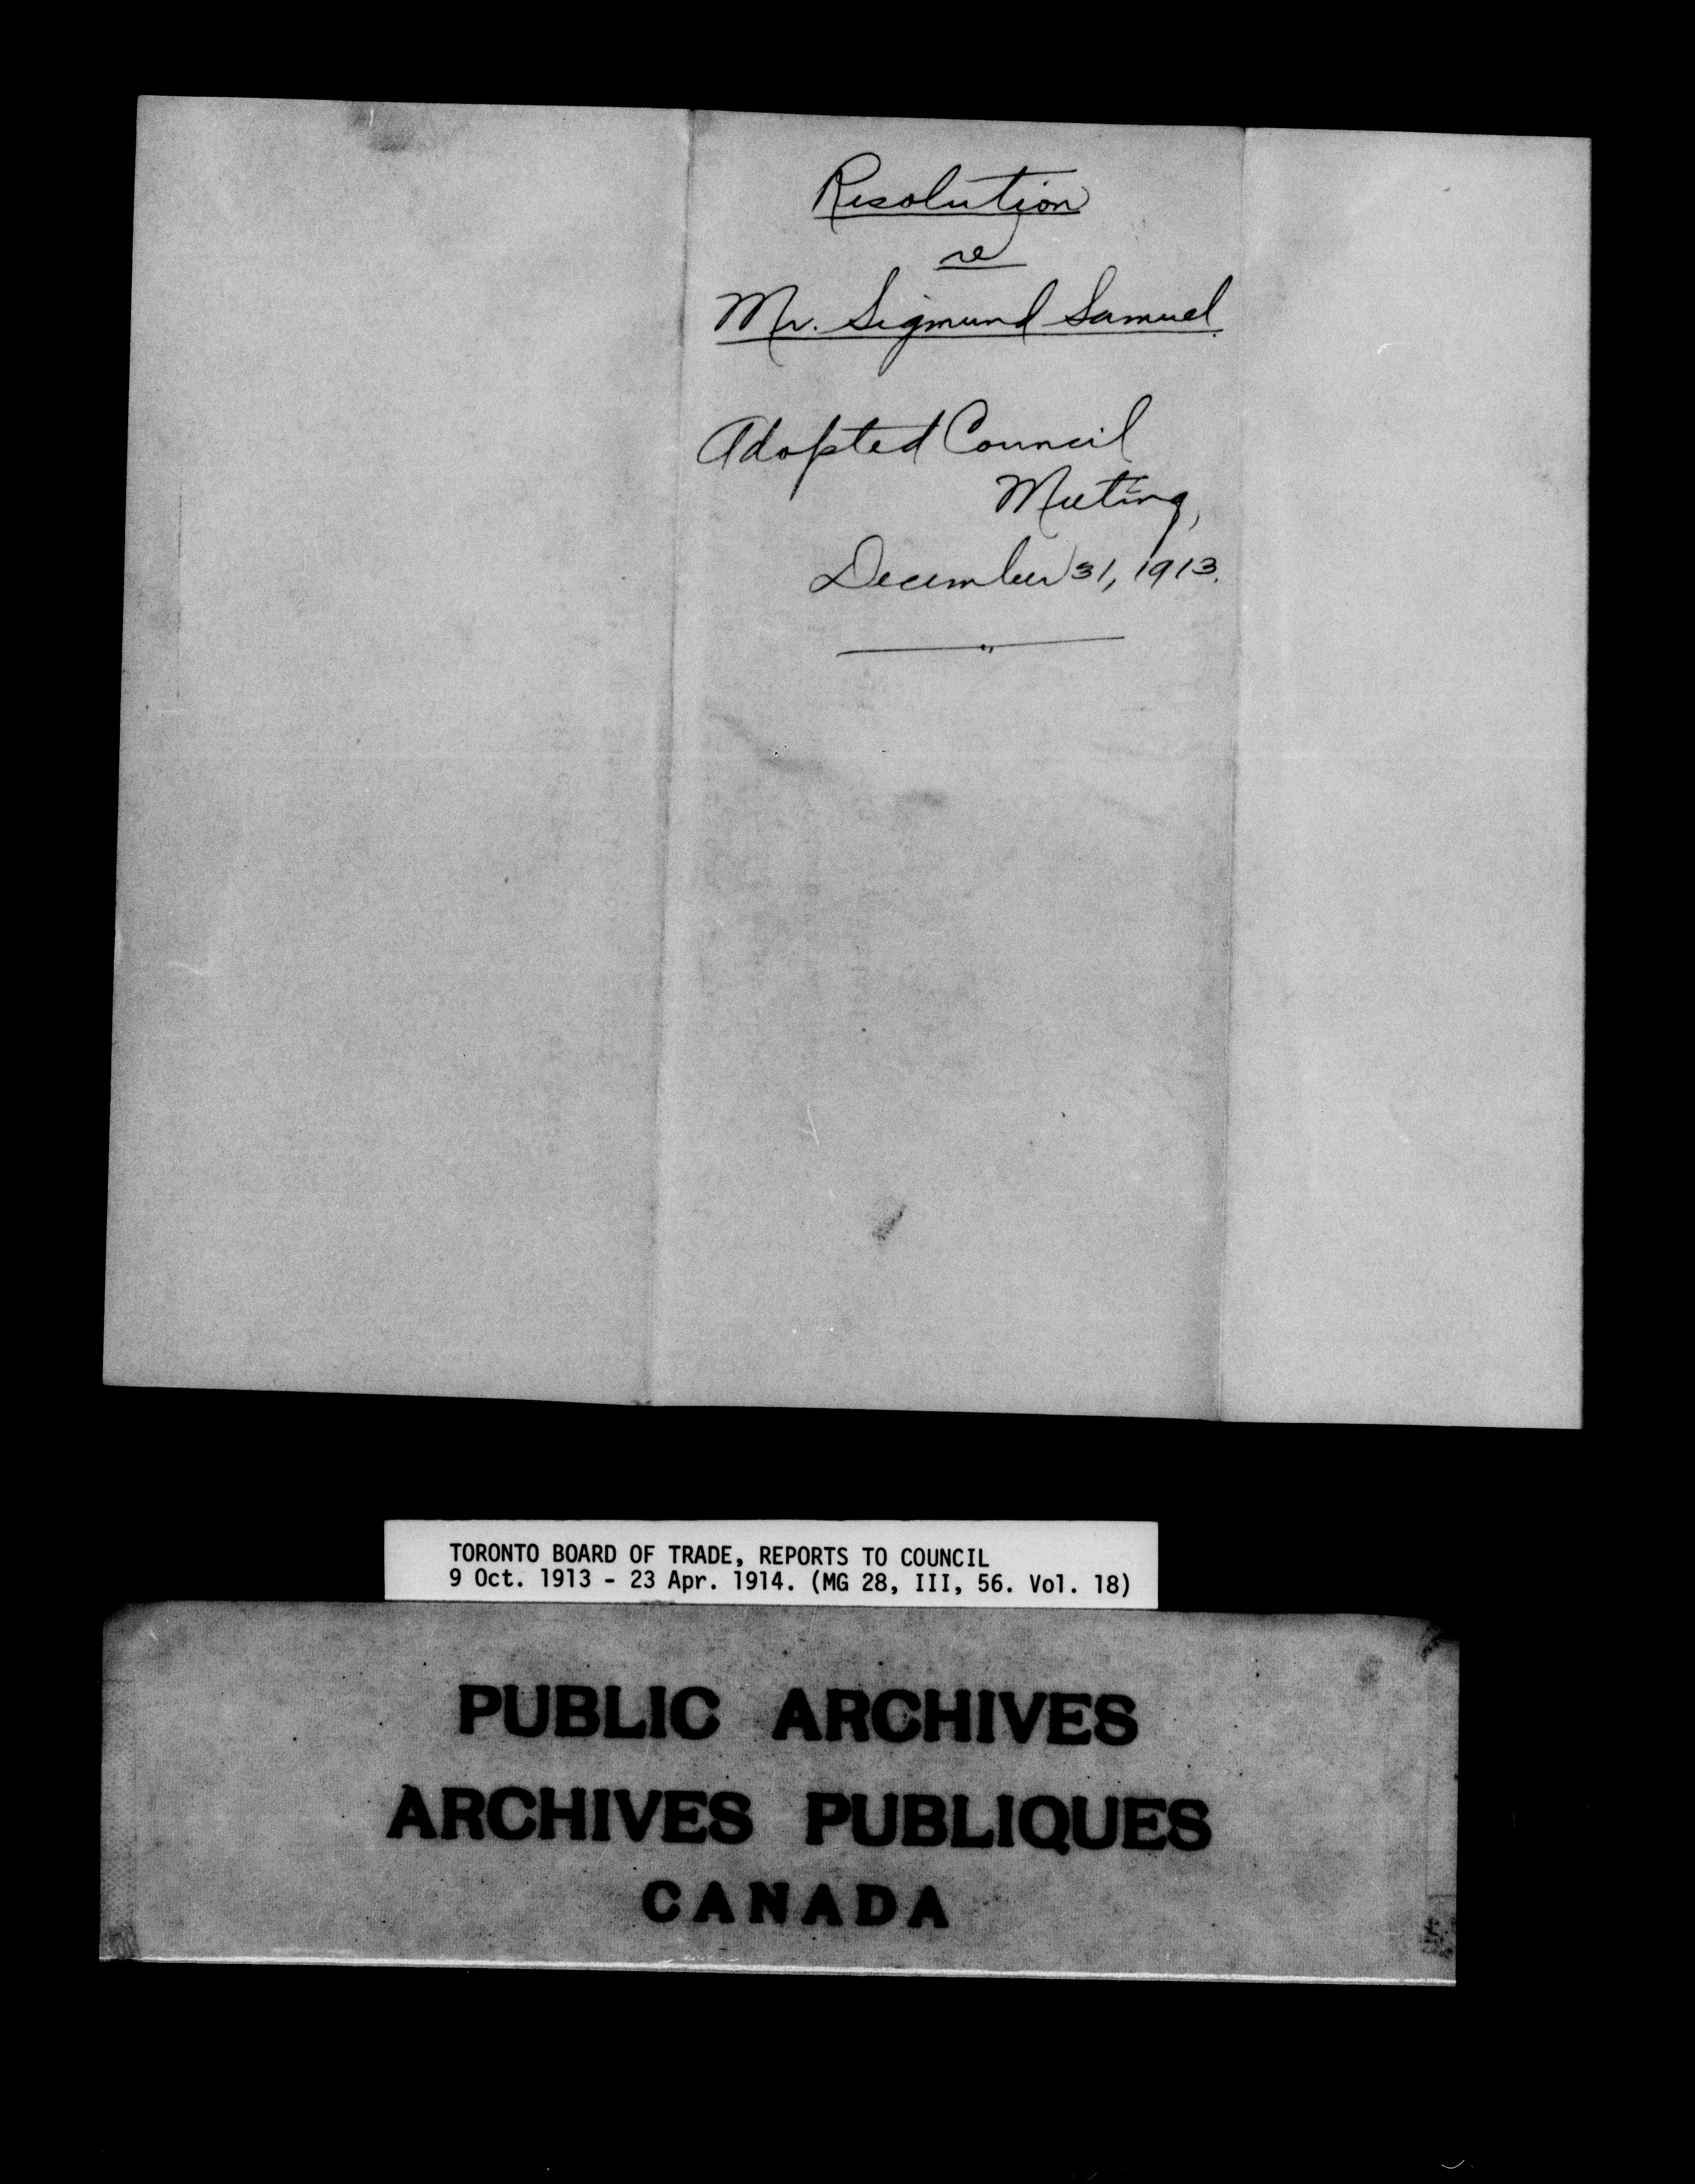 Resolution
re
Mr. Sigmund Samuel.
Adopted Council
Meeting,
December 31, 1913.
TORONTO BOARD OF TRADE, REPORTS TO COUNCIL
9 Oct. 1913 - 23 Apr. 1914. (MG 28, III, 56. Vol. 18)
PUBLIC ARCHIVES
ARCHIVES PUBLIQUES
CANADA